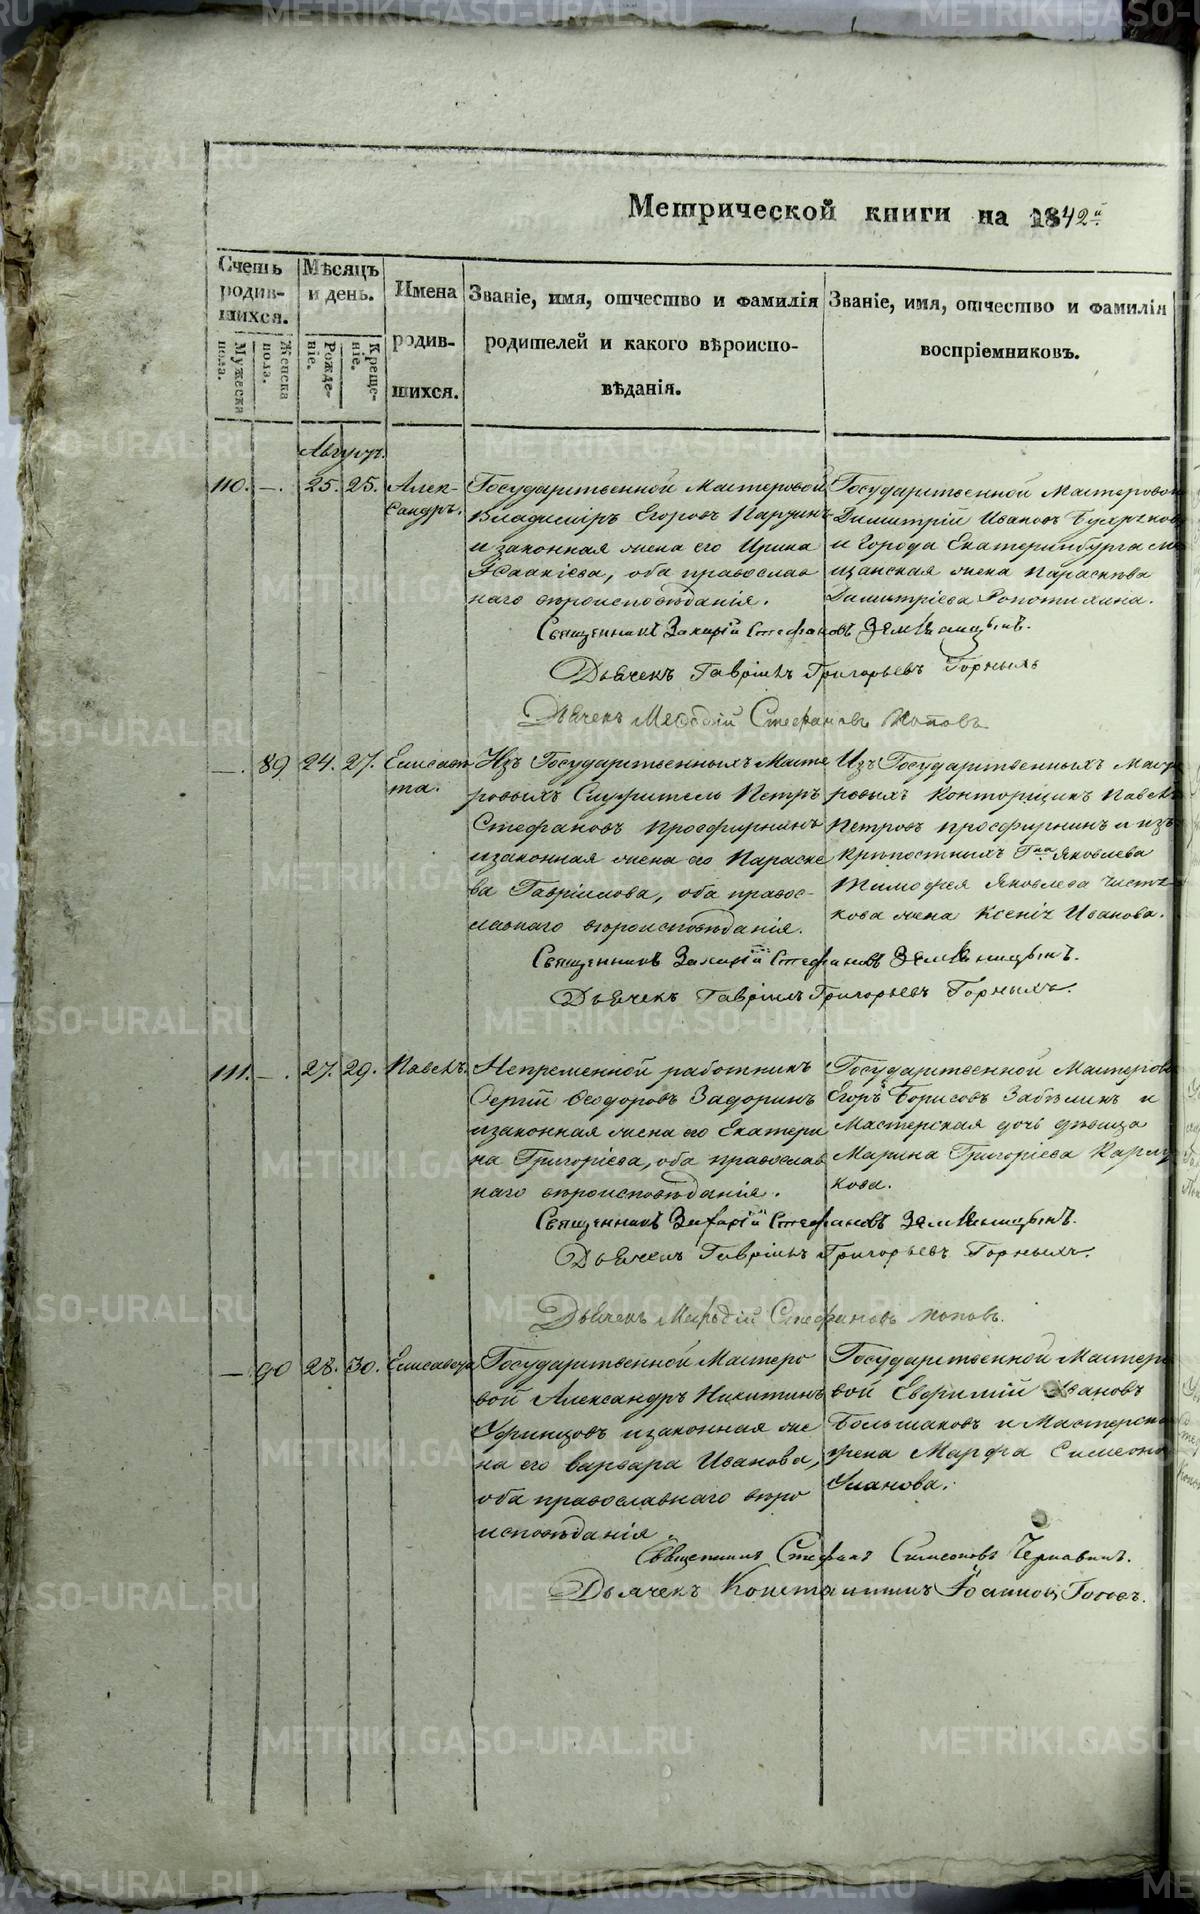 Метрической книги на 1842й
Счетъ родив-шихся.
Мужеска пола.
Женска пола.
Мѣсяцъ и день.
Рожде-ніе.
Креще-ніе.
Имена родив-шихся.
Званіе, имя, отчество и фамилія
родителей и какого вѣроиспо-
вѣданія.
Званіе, имя, отчество и фамилія
воспріемниковъ.
Августъ.
110. —. 25. 25. Алек-
сандръ.
Государственной Мастеровой
Владиміръ Егоровъ
и законная жена его Ирина
Исаакіева, оба православ
наго вѣроисповѣданія.
Государственной Мастеровой
Димитрій Ивановъ
и Города Екатеринбурга мѣ
щанская жена Параскѣва
Димитріева
Священникъ Захарій Стефановъ Земляницынъ.
Дьячекъ Гавріилъ Григорьевъ Горныхъ
Дьячекъ Меѳодій Стефановъ Поповъ
—. 89 24. 27. Елисаве
та.
Изъ Государственныхъ Масте
ровыхъ Служитель Петръ
Стефановъ Просфирнинъ
и законная жена его Параске
ва Гавріилова, оба правос-
лавнаго вѣроисповѣданія.
Изъ Государственныхъ Масте
ровыхъ Конторщикъ Павелъ
Петровъ Просфирнинъ и изъ
крѣпостныхъ Гна Яковлева
Тимофея Яковлева
кова жена Ксенія Иванова.
Священникъ Захарій Стефановъ Земляницынъ.
Дьячекъ Гавріилъ Григорьевъ Горныхъ.
111. —. 27. 29. Павелъ.
Непременной работникъ
Сергій Ѳеодоровъ Задоринъ
и законная жена его Екатери
на Григоріева, оба православ
наго вѣроисповѣданія.
Государственной Мастеровой
Егоръ Борисовъ Забѣлинъ и
Мастерская дочь дѣвица
Марина Григоріева
кова.
Священникъ Захарій Стефановъ Земляницынъ.
Дьячекъ Гавріилъ Григорьевъ Горныхъ.
Дьячекъ Меѳодій Стефановъ Поповъ.
— 90 28. 30. Елисавета
Государственной Мастеро
вой Александръ Никитинъ
Уфинцовъ и законная же
на его Варвара Иванова,
оба православнаго вѣро
исповѣданія.
Государственной Мастеро
вой Евфимій Ивановъ
Большаковъ и Мастерска
жена Марфа Симеоно
Уланова.
Священникъ Стефанъ Симеоновъ Чернавинъ.
Дьячекъ Константинъ Іоанновъ
METRIKI.GASO-URAL.RU